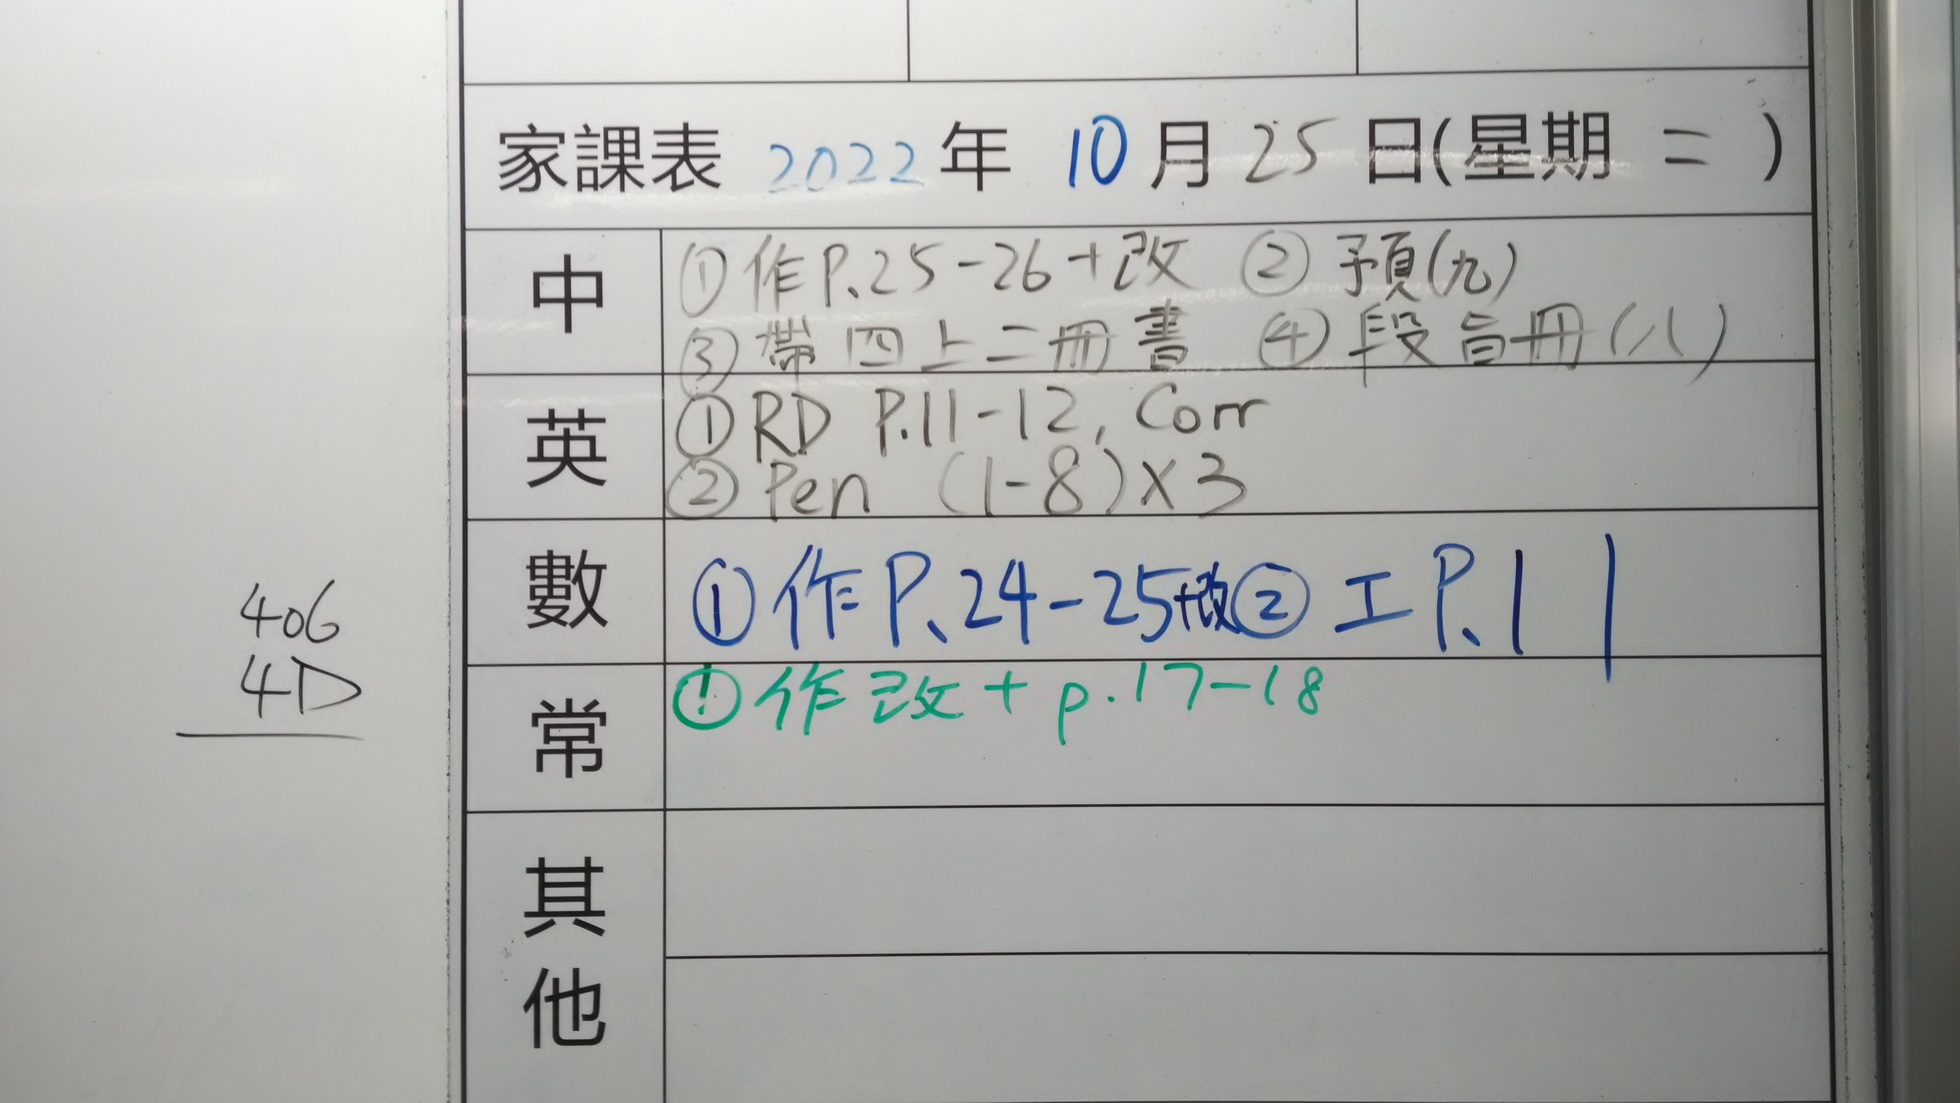 家課表 2022年 10月25日(星期二)
中
①作P.25-26+改 ②預(九)
③帶四上二冊書 ④段旨冊(八)
英
①RD P.11-12, Corr
②Pen (1-8)×3
數
①作P.24-25+改②工P.11
常
①作改+p.17-18
其他
406
4D